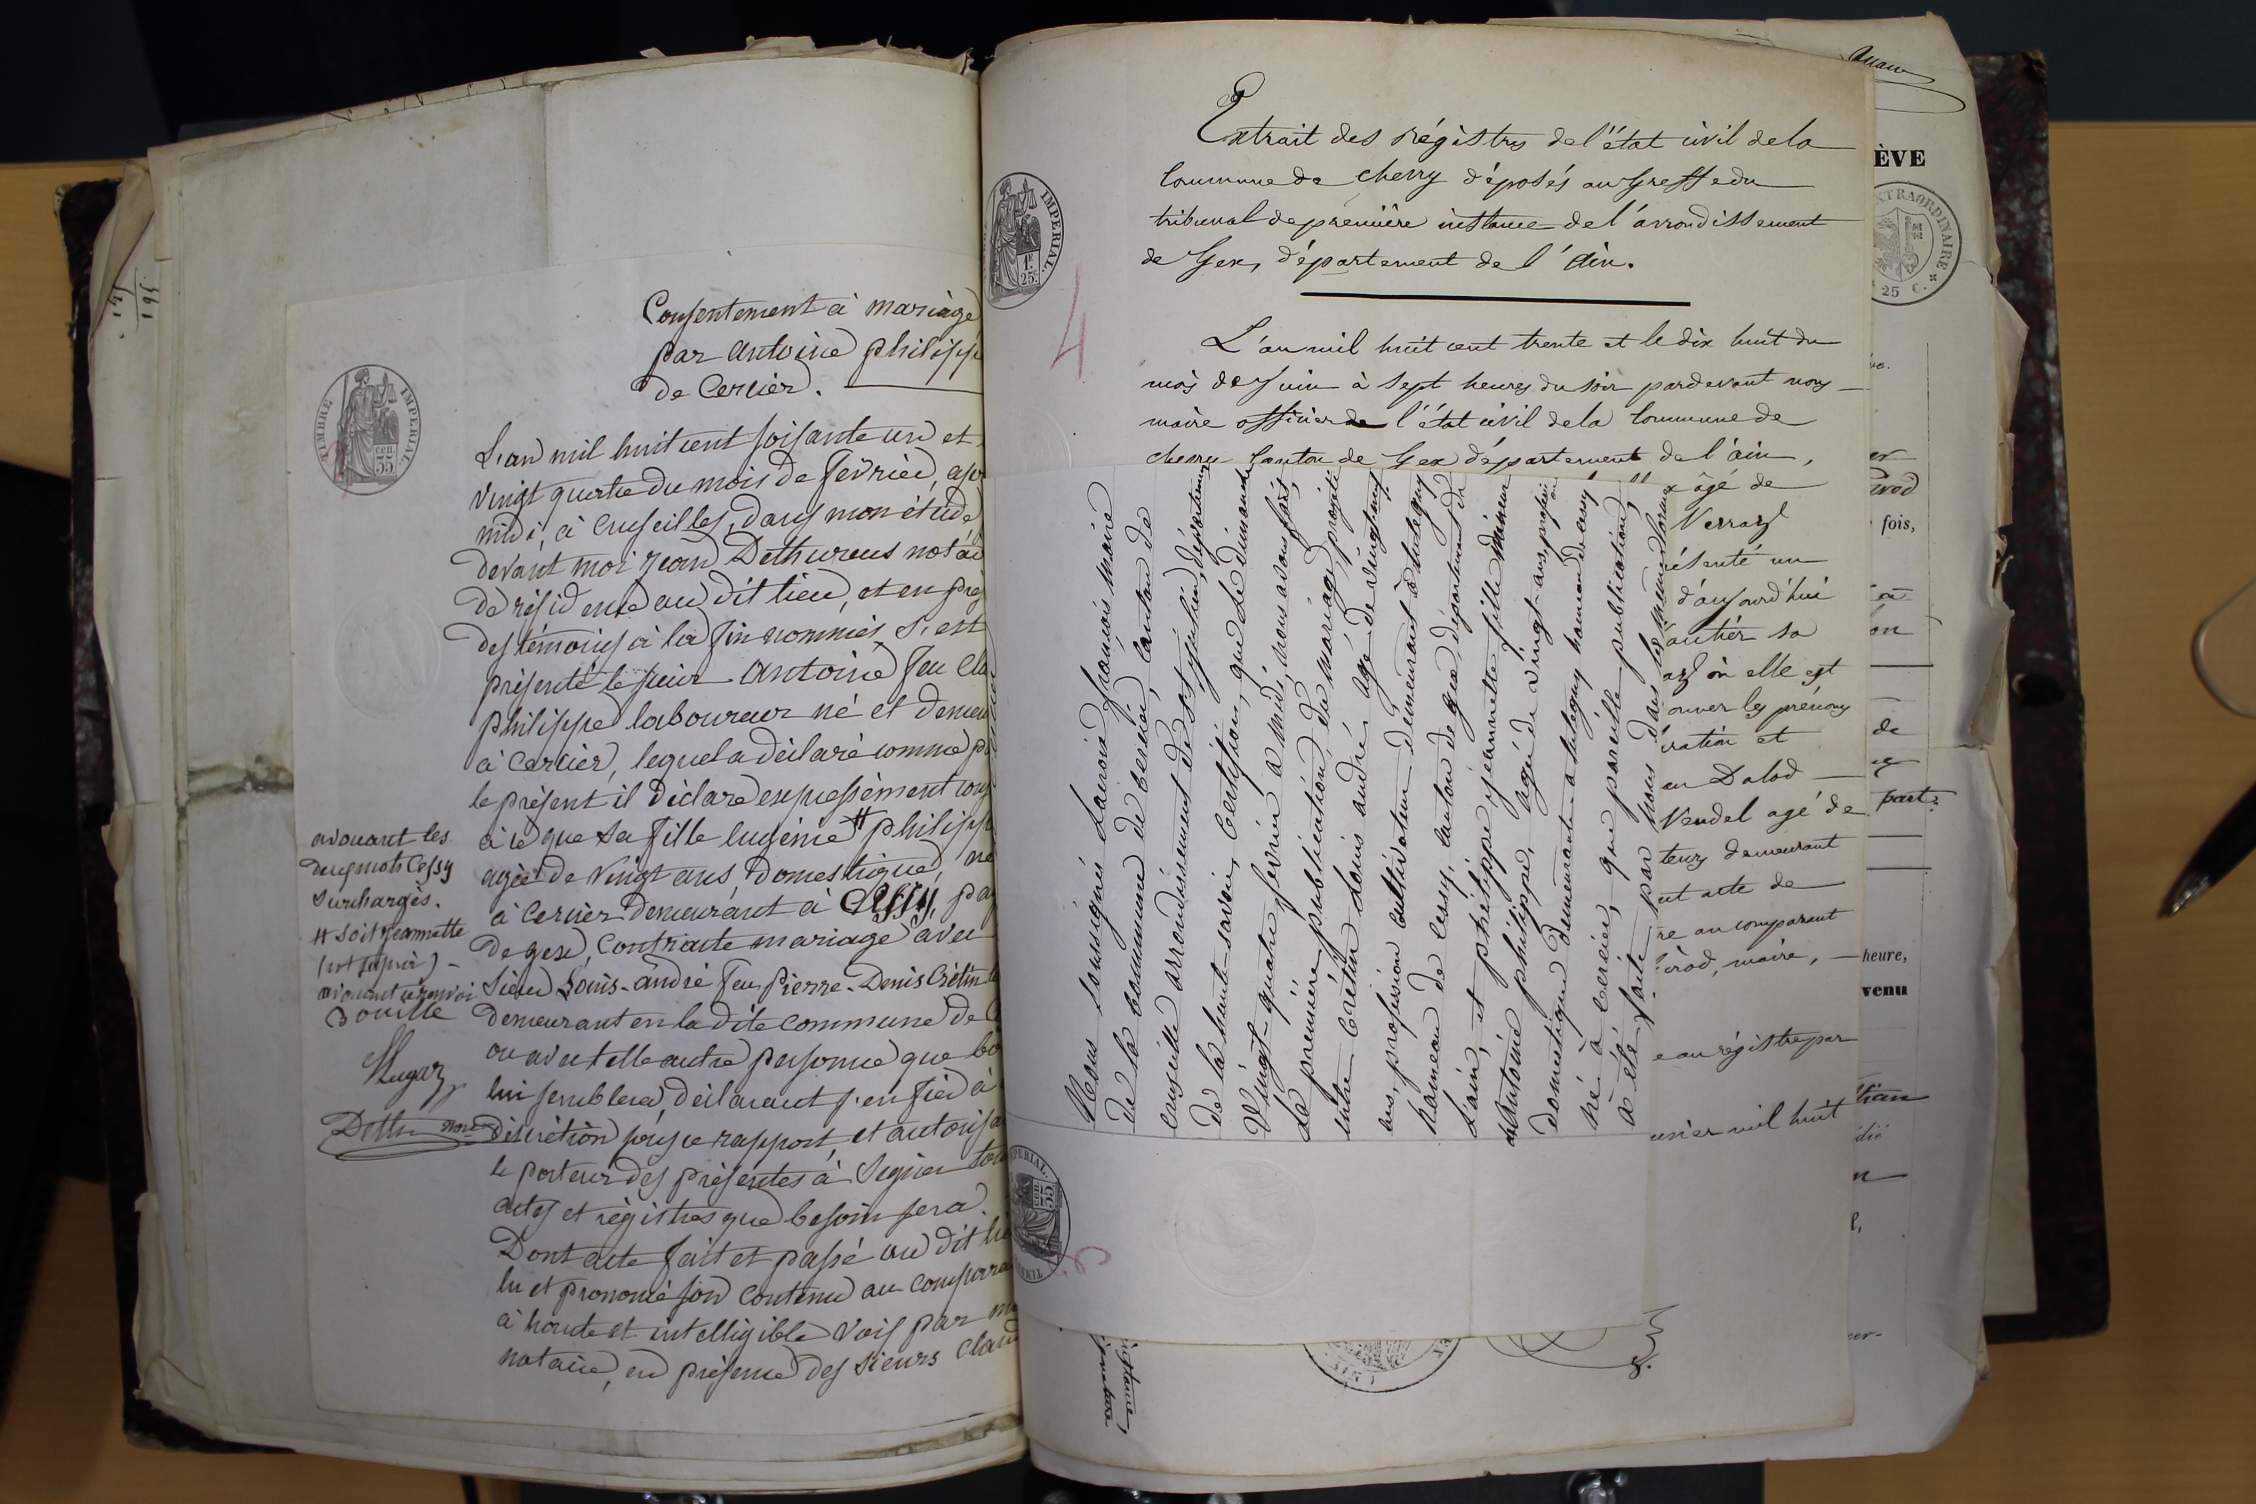 Consentement à mariage
par antoine philippe
de Cercier.
L'an mil huit cent soisante un et
vingt quatre du mois de février, apr
midi, à Cruseilles, dans mon étude
devant moi Jean Dethurens notai
de résidence au dit lieu, et en pres
des témoins à la fin nommés, s'est
présenté le sieur Antoine feu Cla
philippe laboureur né et demeu
à Cercier, lequel a déclaré comme p
le présent il déclare expressément con
à ce que sa fille eugénie # philipp
agée de vingt ans, domestique, né
à Cercier demeurant à Cessy, pa
de gex, contracte mariage avec
Sieur Louis-andré feu Pierre-Denis Crétin
demeurant en la dite commune de C
ou avec telle autre personne que bo
lui semblera, déclarant s'en fier à
discrétion sous ce rapport, et autorisa
le porteur des présentes à signer tou
actes et régistres que besoin sera.
Dont acte fait et passé au dit lie
lu et prononcé son contenu au comparra
à haute et intelligible voix par m
notaire, en présence des sieurs Clau
avouant les
deux mots Cessy
surchargés.
# soit Jeannette
avouant ce renvoi
Dethu nore
TIMBRE IMPERIAL.
cen.
35
361
Extrait des régistres de l'état civil de la
Commune de Chevry déposés au Greffe du
tribunal de première instance de l'arrondissement
de Gex, département de l'Ain.
IMPERIAL.
1f.
25c.
4
L'an mil huit cent trente et le dix huit du
mois de Juin à sept heures du soir pardevant nous
maire officier de l'état civil de la Commune de
chevry Canton de Gex département de l'ain,
âgé de
Verraz
ésenté un
d'aujourd'hui
sa
où elle est
onner les prénoms
ration et
Vendel agé de
teurs demeurant
nt acte de
re au comparant
érod, maire,
e au régistre par
mil huit
Nous soussigné Lavoid françois maire
de la commune de Cercier, canton de
cruseille arrondissement de St julien, département
de la haute-savoie, Certifions, que le dimanche
Vingt-quatre février à midi, nous avons fait,
la première publication du mariage, projeté
entre Crétin Louis andré, agé de vingt neuf
ans, profession cultivateur demeurant à
hameau de Cessy, canton de gex, département de
L'ain, et philippe jeannette fille mineur
d'Antoine philippe, agée de vingt ans, profession
domestique demeurante à hameau de Cessy
né à Cercier, que pareille publication,
a été faite par nous dans la même forme
IMPERIAL.
cen.
35
ÈVE
EXTRAORDINAIRE
25 C.
fois,
de
part.
heure,
venu